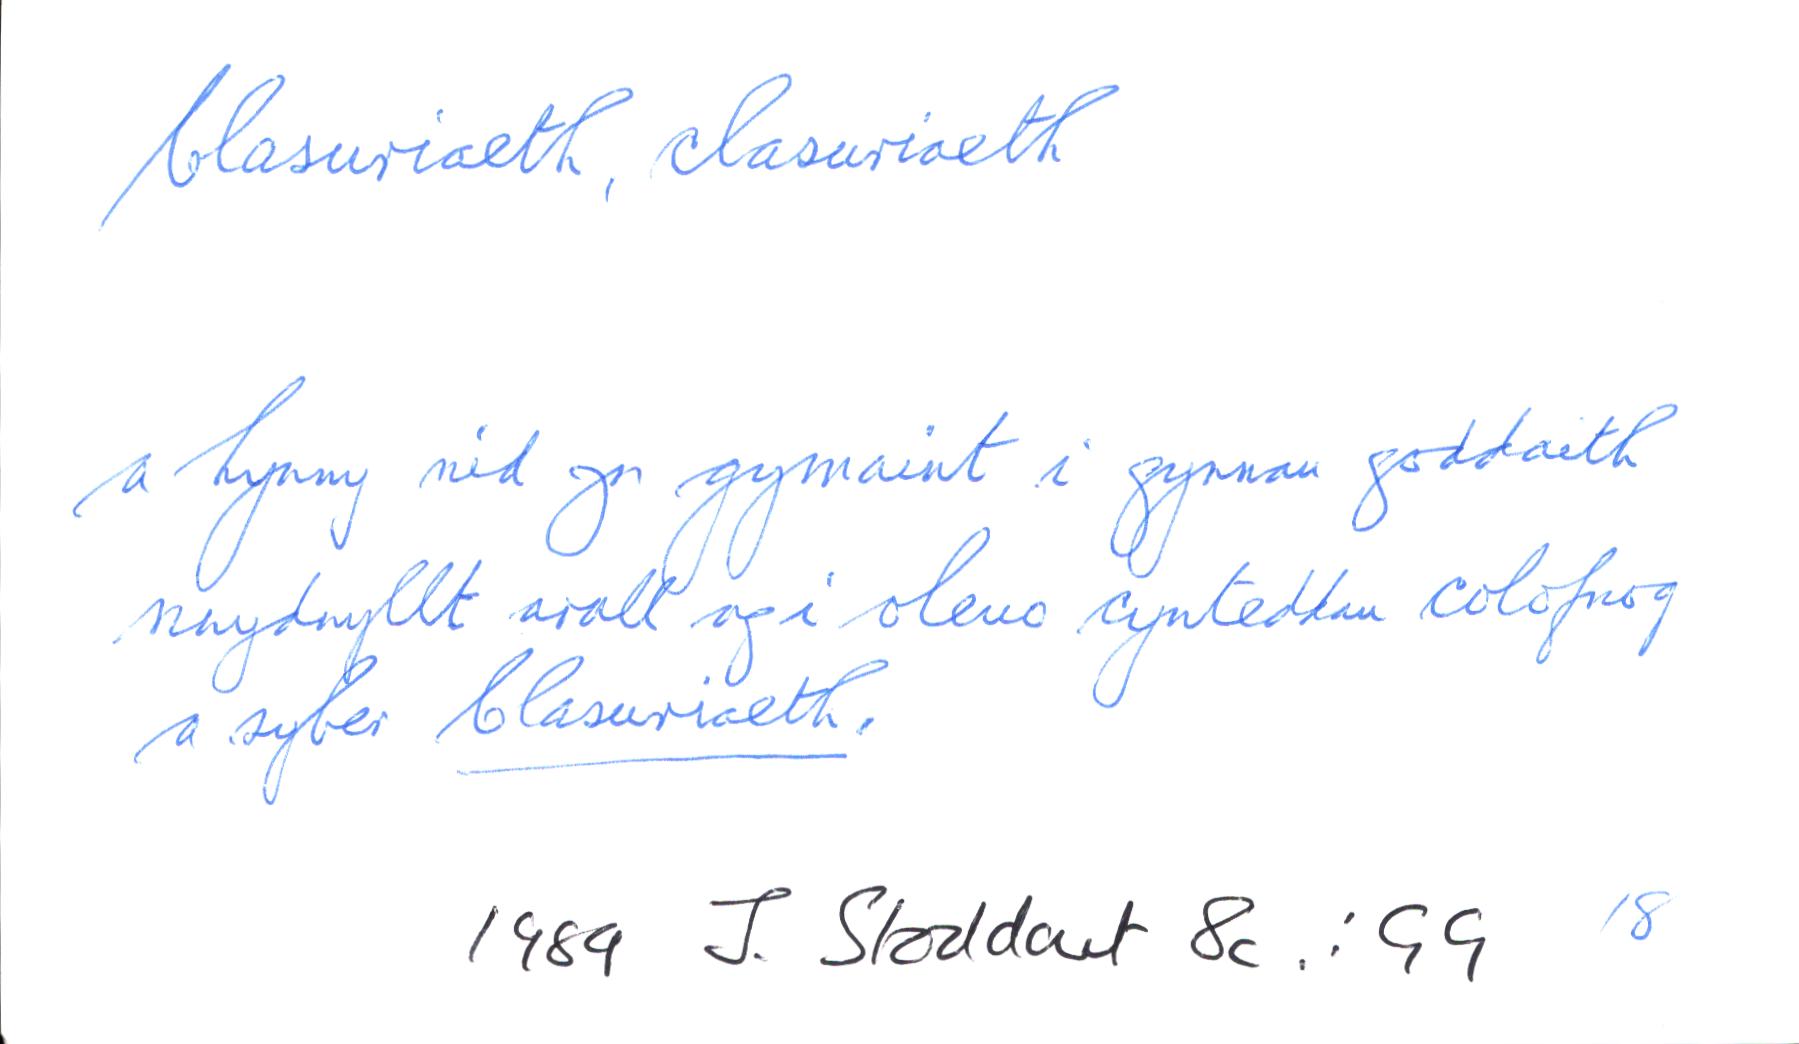 blasuriaeth, clasuriaeth
a hynny nid yn gymaint i gynnau goddaith
nwydwyllt arall ag i oleuo cynteddau colofnog
a syber blasuriaeth.
1989 J. Stoddart &c.: GG 18